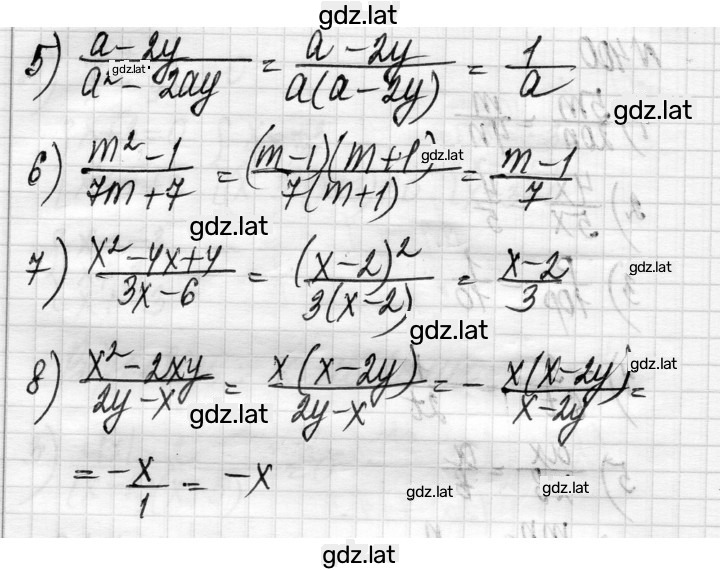 gdz.lat
5) (a-2y)/(a²-2ay) = (a-2y)/(a(a-2y)) = 1/a
gdz.lat
gdz.lat
6) (m²-1)/(7m+7) = ((m-1)(m+1))/(7(m+1)) = (m-1)/7
gdz.lat
gdz.lat
7) (x²-4x+4)/(3x-6) = (x-2)²/(3(x-2)) = (x-2)/3
gdz.lat
gdz.lat
8) (x²-2xy)/(2y-x) = (x(x-2y))/(2y-x) = - (x(x-2y))/(x-2y) =
gdz.lat
gdz.lat
= -x/1 = -x
gdz.lat
gdz.lat
gdz.lat